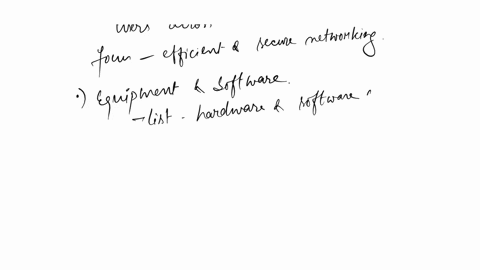 focus - efficient & secure networking.
•) Equipment & Software.
- list - hardware & software